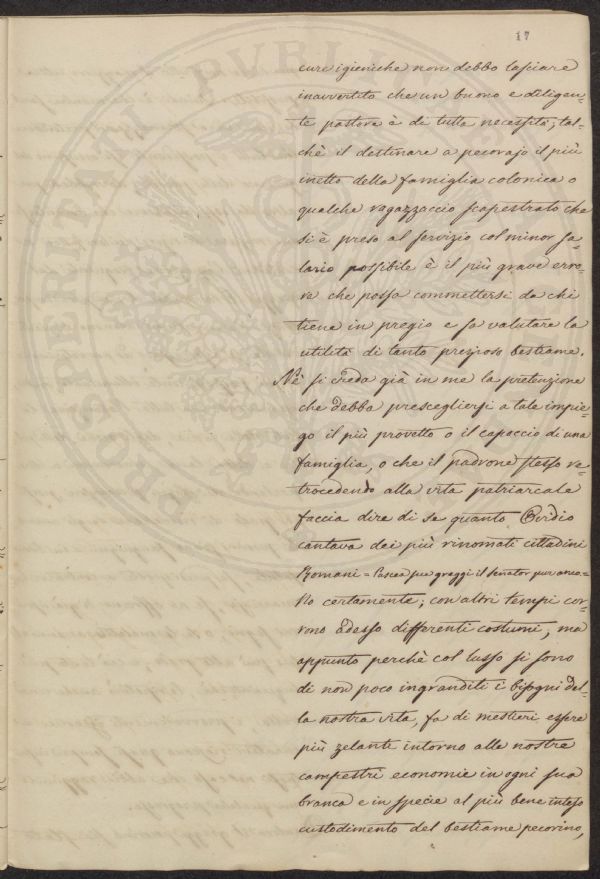 17
cure igieniche non debbo lasciare
inavvertito che un buono e diligen=
te pastore è di tutta necessità; tal=
chè il destinare a pecorajo il più
inetto della famiglia colonica o
qualche ragazzaccio scapestrato che
si è preso al servizio col minor sa=
lario possibile è il più grave erro=
re che possa commettersi da chi
tiene in pregio e sa valutare la
utilità di tanto prezioso bestiame.
Nè si creda già in me la pretenzione
che debba prescegliersi a tale impie=
go il più provetto o il capoccio di una
famiglia, o che il padrone stesso re=
trocedendo alla vita patriarcale
faccia dire di se quanto Ovidio
cantava dei più rinomati cittadini
Romani = Pascea sue greggi il senator pur anco =
No certamente; con altri tempi cor=
rono adesso differenti costumi, ma
appunto perchè col lusso si sono
di non poco ingranditi i bisogni del=
la nostra vita, fa di mestieri essere
più zelanti intorno alle nostre
campestri economie in ogni sua
branca e in specie al più bene inteso
custodimento del bestiame pecorino,
PROSPERITATI PVBLI